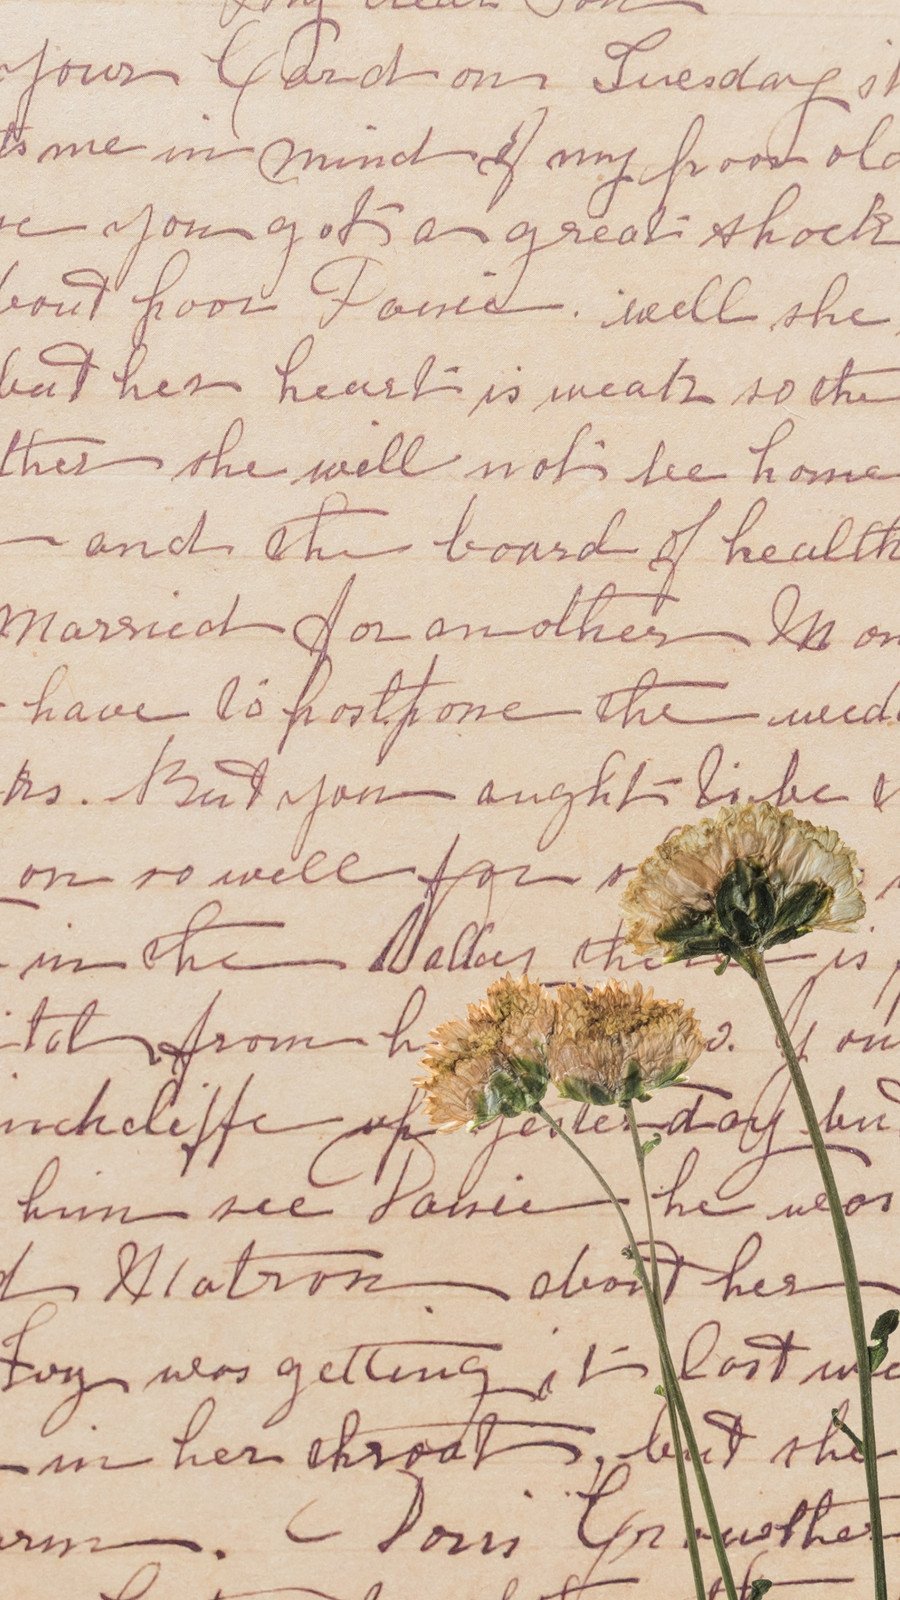 My dear Son
your Card on Tuesday it
ts me in mind of my poor old
ve you got a great shock
bout poor Fanie. well she
but her heart is weak so the
ther she will not be home
and the board of health
Married for another Mon
have to postpone the wedd
rs. But you aught to be
on so well for
in the Valley there is
ital from h s. you
inchcliffe up yesterday but
him see Fanie he was
d Matron about her
Foy was getting it last we
in her throat, but she
arm. Doris Grandmother